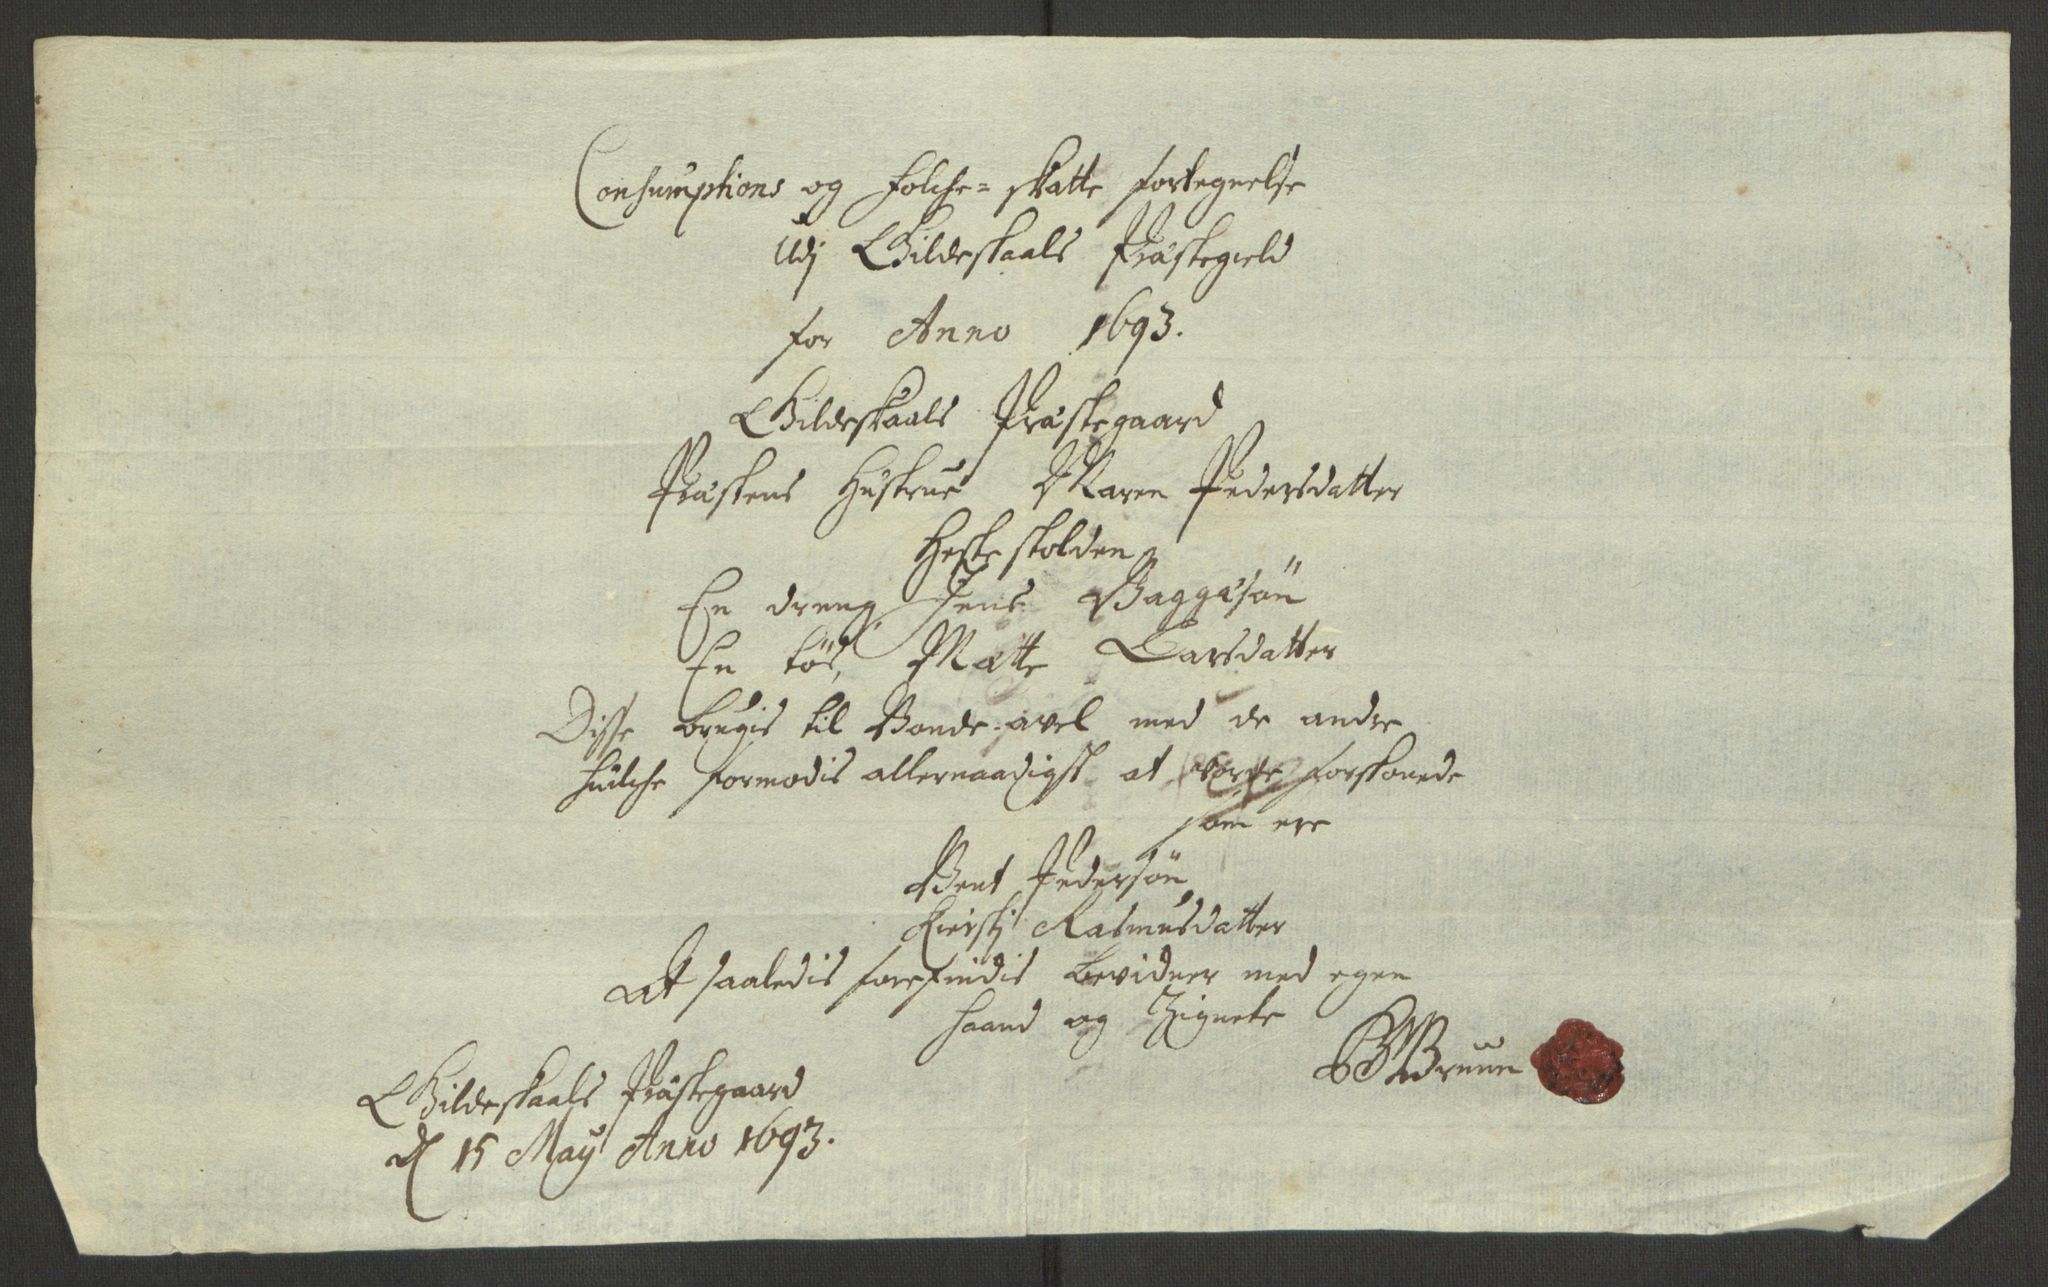 Consumptions og folche= skatte fortegnelse
Udj Gildeskaals Præstegield
for Anno 1693.
Gildeskaals Præstegaard
Præstens Hustrue Maren Pedersdatter
Heste skolden
En dreng, Jens Baggesøn
En tøs, Mætte Larsdatter
Disse brugis til Bonde-avel med de andre
huilche formodis allernaadigst at vorde forskonede
som ere
Bent Pedersøn
Kiersti Rasmusdatter
At saaledis forefindis bevidner med egen
haand og Zignete
Bruun
Gildeskaals Præstegaard
d 15 Maÿ Anno 1693.